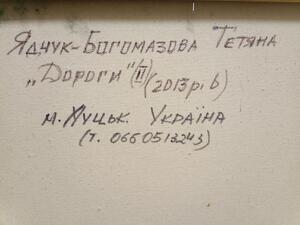 Ядчук-Богомазова Тетяна
„Дороги"(II)(2013р.в)
м. Луцьк. Україна
(т. 0660513243)